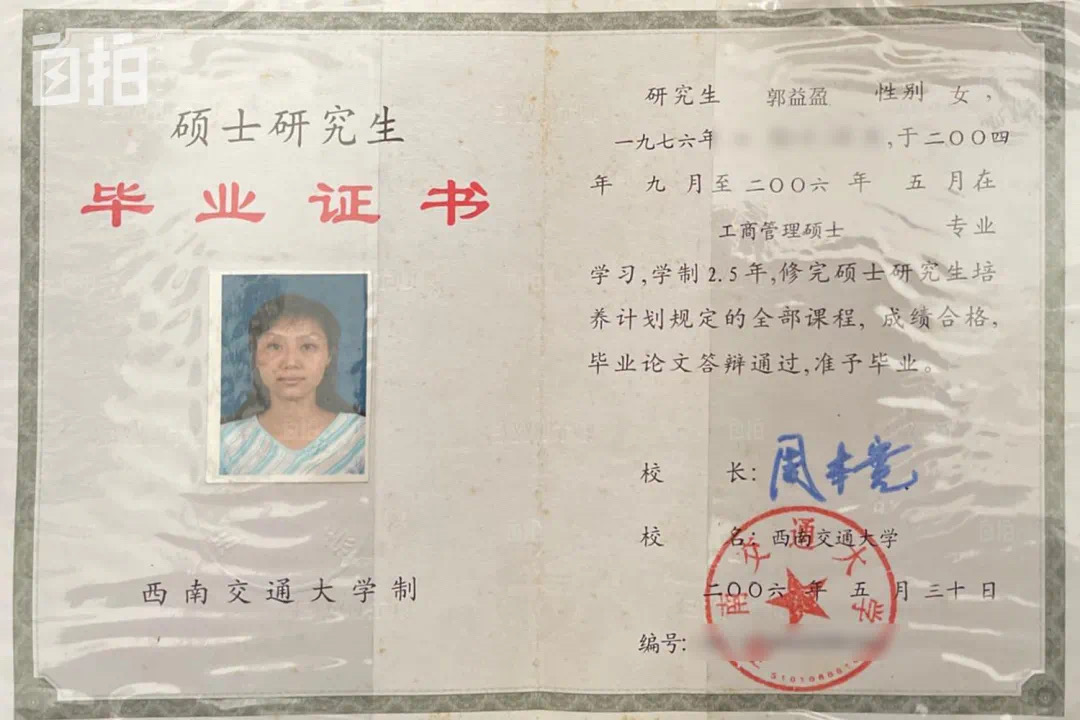 自拍
硕士研究生
毕业证书
西南交通大学制
研究生 郭益盈 性别 女，
一九七六年 ，于二〇〇四
年 九 月至 二〇〇六 年 五 月在
工商管理硕士 专业
学习，学制2.5年，修完硕士研究生培
养计划规定的全部课程，成绩合格，
毕业论文答辩通过，准予毕业。
校 长：周本宽
校 名：西南交通大学
二〇〇六 年 五 月 三十 日
编号：
南交通大学